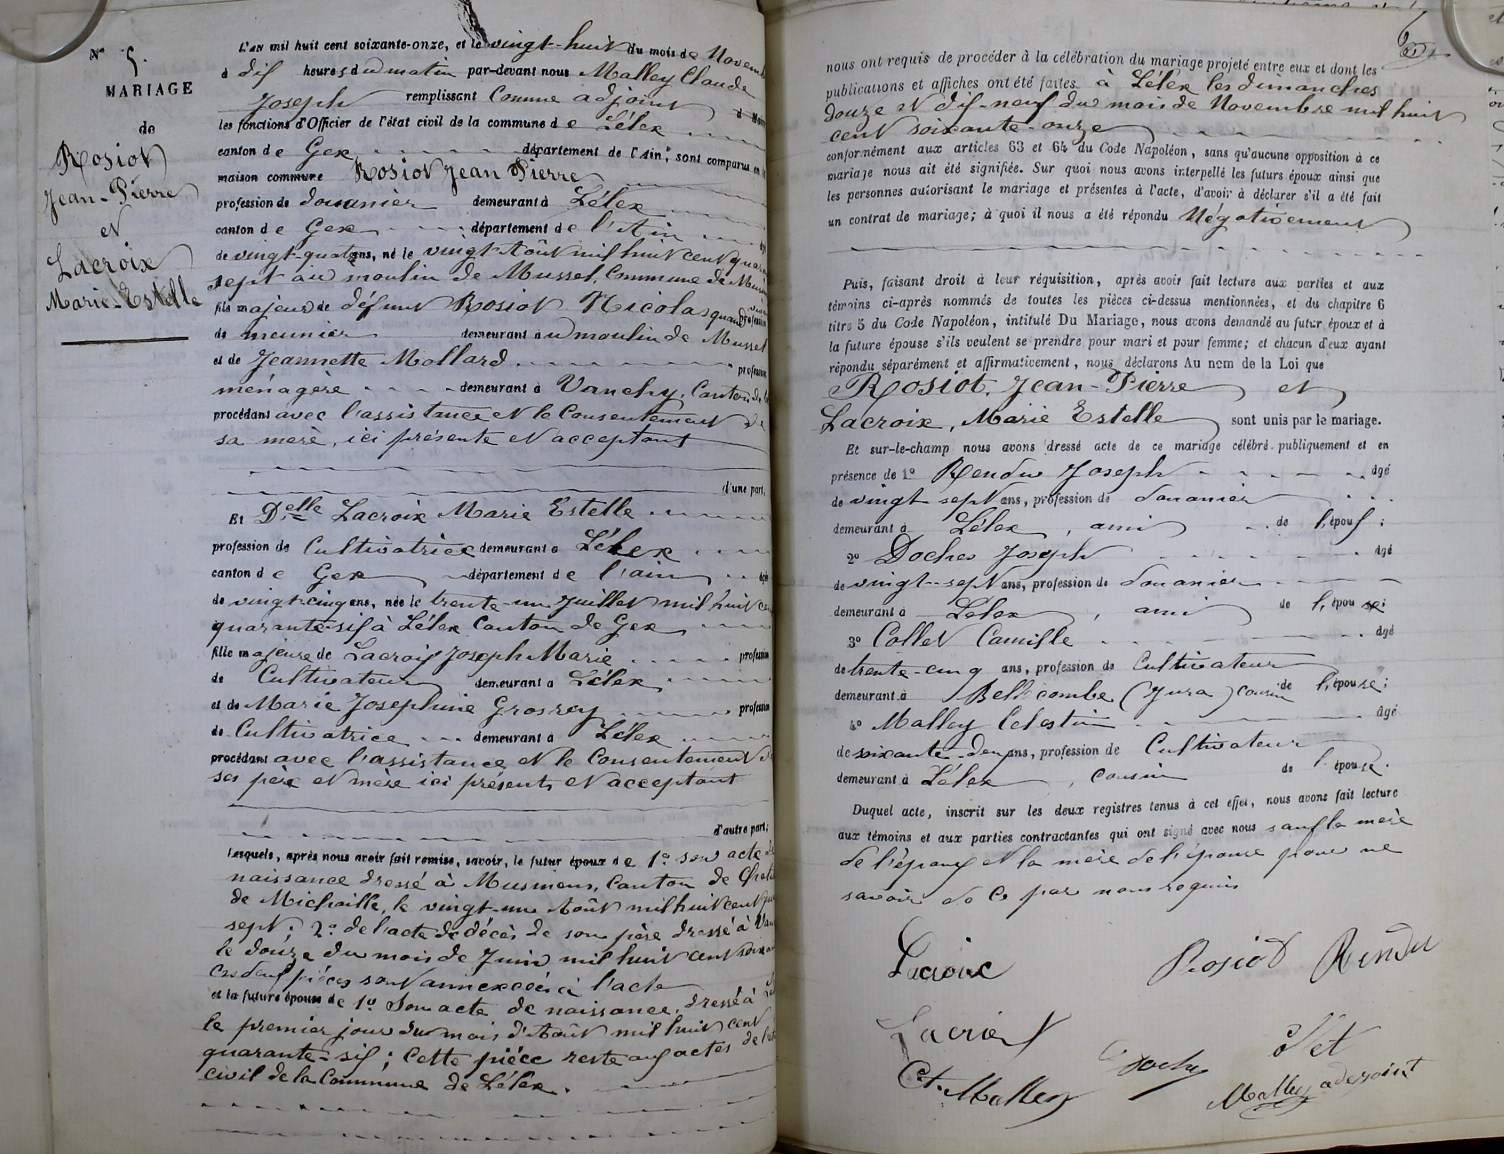 N° 5.
MARIAGE
de
Rosiot
Jean-Pierre
et
Lacroix
Marie-Estelle
L'AN mil huit cent soixante-onze, et le vingt-huit du mois de Novemb
à dix heures du matin par-devant nous Malley Claude
Joseph remplissant comme adjoint
les fonctions d'Officier de l'état civil de la commune de Lélex
canton de Gex département de l'Ain, sont comparus en
maison commune Rosiot Jean Pierre
profession de douanier demeurant à Lélex
canton de Gex département de l'Ain
de vingt-quatre ans, né le vingt Août mil huit cent quara
sept au moulin de Mussel, Commune de
fils majeur de défunt Rosiot Nicolas quand profession
de meunier demeurant au moulin de Mussel
et de Jeannette Mollard profession
ménagère demeurant à Vanchy, Canton de
procédant avec l'assistance et le Consentement de
sa mère, ici présente et acceptant
d'une part,
Et Delle Lacroix Marie Estelle
profession de Cultivatrice demeurant à Lélex
canton de Gex département de l'ain âgée
de vingt-cinq ans, née le trente-un Juillet mil huit ce
quarante-six à Lélex Canton de Gex
fille majeure de Lacroix Joseph Marie profession
de Cultivateur demeurant à Lélex
et de Marie Josephine Grosrey profession
de Cultivatrice demeurant à Lélex
procédant avec l'assistance et le Consentement de
ses père et mère ici présents et acceptant
d'autre part;
Lesquels, après nous avoir fait remise, savoir, le futur époux de 1° son acte de
naissance dressé à Musinens, Canton de Chatil
de Michaille, le vingt-un Août mil huit cent
sept; 2° de l'acte de décès de son père dressé à Van
le douze du mois de Juin mil huit cent
ces deux pièces sont annexées à l'acte
et la future épouse de 1° Son acte de naissance, dressé à Lé
le premier jour du mois d'Août mil huit cent
quarante-six; Cette pièce reste aux actes de l'éta
civil de la Commune de Lélex.
nous ont requis de procéder à la célébration du mariage projeté entre eux et dont les
publications et affiches ont été faites à Lélex les dimanches
douze et dix-neuf du mois de Novembre mil huit
cent soixante-onze
conformément aux articles 63 et 64 du Code Napoléon, sans qu'aucune opposition à ce
mariage nous ait été signifiée. Sur quoi nous avons interpellé les futurs époux ainsi que
les personnes autorisant le mariage et présentes à l'acte, d'avoir à déclarer s'il a été fait
un contrat de mariage; à quoi il nous a été répondu Négativement
Puis, faisant droit à leur réquisition, après avoir fait lecture aux parties et aux
témoins ci-après nommés de toutes les pièces ci-dessus mentionnées, et du chapitre 6
titre 5 du Code Napoléon, intitulé Du Mariage, nous avons demandé au futur époux et à
la future épouse s'ils veulent se prendre pour mari et pour femme; et chacun d'eux ayant
répondu séparément et affirmativement, nous déclarons Au nom de la Loi que
Rosiot, Jean-Pierre et
Lacroix, Marie Estelle sont unis par le mariage.
Et sur-le-champ nous avons dressé acte de ce mariage célébré publiquement et en
présence de 1° Rendu Joseph âgé
de vingt-sept ans, profession de douanier
demeurant à Lélex, ami de l'époux;
2° Doches Joseph âgé
de vingt-sept ans, profession de douanier
demeurant à Lélex, ami de l'épouse;
3° Collet Camille âgé
de trente-cinq ans, profession de Cultivateur
demeurant à Bellecombe (Jura) cousin de l'épouse;
4° Malley Celestin âgé
de soixante-deux ans, profession de Cultivateur
demeurant à Lélex, cousin de l'épouse.
Duquel acte, inscrit sur les deux registres tenus à cet effet, nous avons fait lecture
aux témoins et aux parties contractantes qui ont signé avec nous sauf la mère
de l'époux et la mère de l'épouse pour ne
savoir de ce par nous requis
Lacroix Rosiot Rendu
Ct. Malley
Malley adjoint